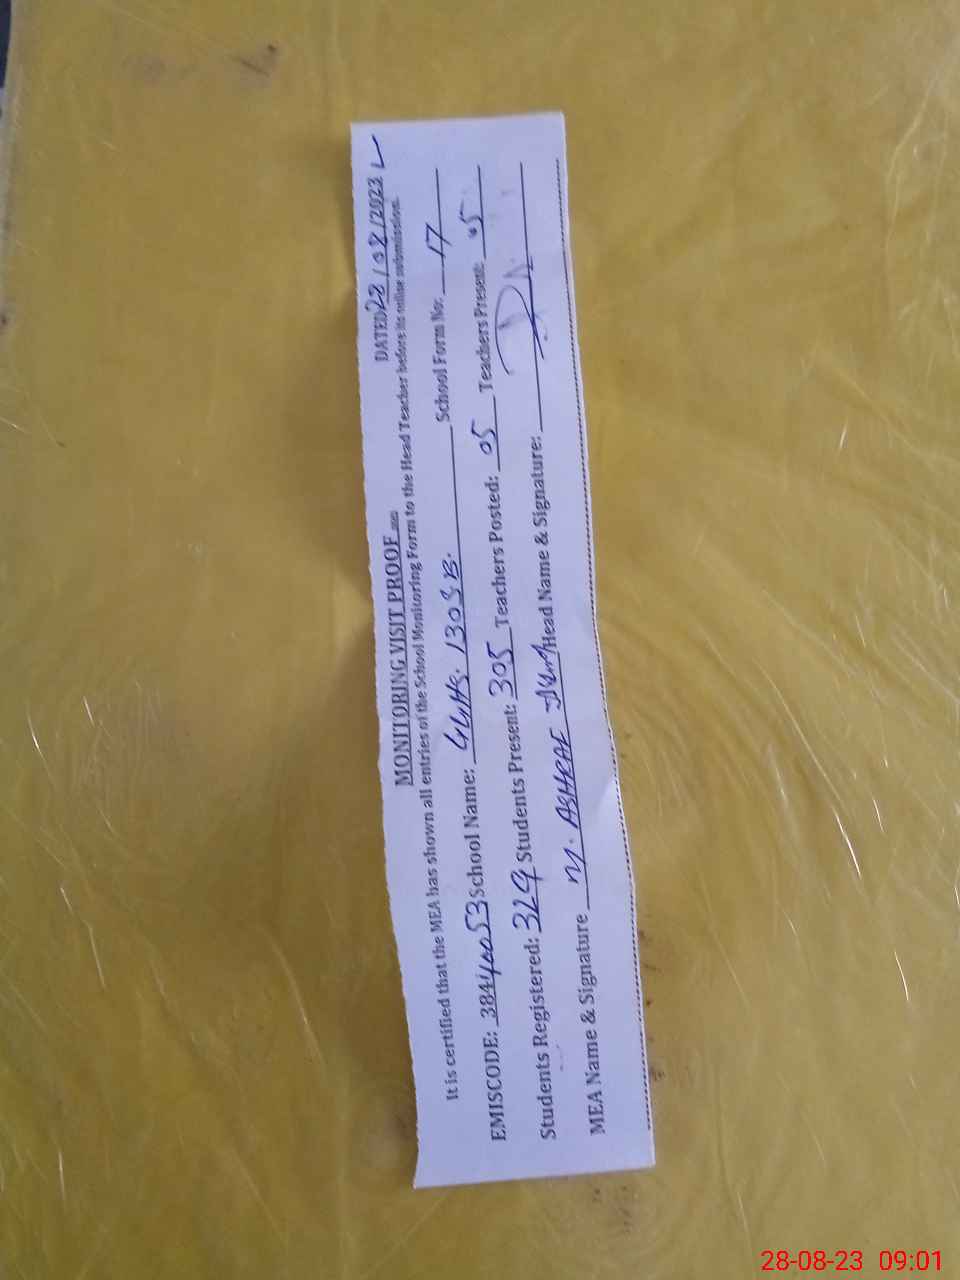 DATED 28/08/2023
MONITORING VISIT PROOF
It is certified that the MEA has shown all entries of the School Monitoring Form to the Head Teacher before its online submission.
EMISCODE: 38440053 School Name: 130 S.B. School Form No: 17
Students Registered: 329 Students Present: 305 Teachers Posted: 05 Teachers Present: 05
MEA Name & Signature M. ASHRAF Head Name & Signature:
28-08-23 09:01